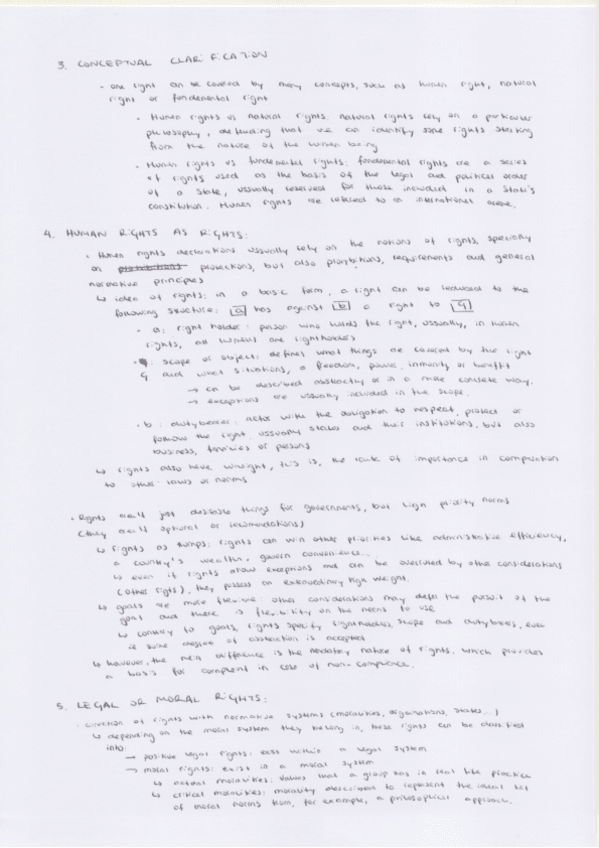 3. CONCEPTUAL CLARIFICATION
· one right can be covered by many concepts, such as human right, natural
right or fundamental right
· Human rights vs natural rights: natural rights rely on a particular
philosophy, defending that we can identify some rights starting
from the nature of the human being
· Human rights vs fundamental rights: fundamental rights are a series
of rights used as the basis of the legal and political order
of a State, usually reserved for those included in a State's
constitution. Human rights are referred to an international
4. HUMAN RIGHTS AS RIGHTS:
· Human rights declarations usually rely on the notions of rights, specially
on protections, but also prohibitions, requirements and general
normative principles
↳ idea of rights: in a basic form, a right can be reduced to the
following structure: a has against b a right to
· a: right holder: person who holds the right, usually, in human
rights, all humans are rightholders
· scope or object: defines what things are covered by the right
and what situations, a freedom, power, immunity or benefit
→ can be described abstractly or in a more concrete way.
→ exceptions are usually included in the scope.
· b: dutybearer: actor with the obligation to respect, protect or
follow the right, usually states and their institutions, but also
business, families or persons
↳ rights also have weight, this is, the of importance in comparation
to other laws or norms
· Rights just desirable things for governments, but high priority norms
(they optional or recomendations)
↳ rights as trumps: rights can win other priorities like administrative efficiency,
a country's wealth, govern convenience...
↳ even if rights allow exceptions and can be overruled by other considerations
(other rights), they possess an extraordinary high weight.
↳ goals are more flexible: other considerations may defer the pursuit of the
goal and there is flexibility on the means to use
↳ contrary to goals, rights specify rightholders, scope and dutybearers, even
if some degree of abstraction is accepted
↳ however, the main difference is the mandatory nature of rights, which provides
a basis for complaint in case of non-compliance.
5. LEGAL OR MORAL RIGHTS:
· of rights with normative systems (moralities, organisations, states...)
↳ depending on the moral system they belong in, these rights can be classified
into:
→ positive legal rights: exist within a legal system
→ moral rights: exist in a moral system
↳ actual moralities: values that a group has in real life practice
↳ critical moralities: morality described to represent the ideal set
of moral norms from, for example, a philosophical approach.